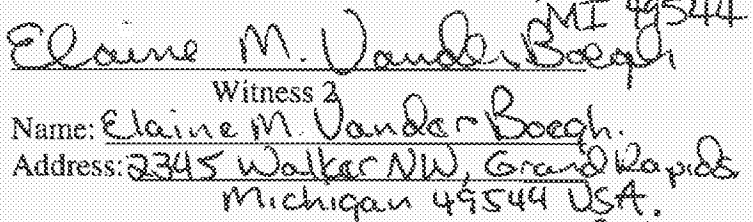 MI 49544
Elaine M. VanderBoegh
Witness 2
Name: Elaine M. VanderBoegh.
Address: 2345 Walker NW, Grand Rapids
Michigan 49544 USA.